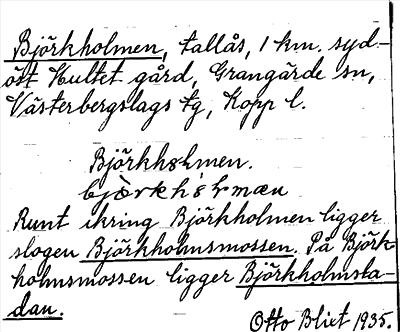 Björkholmen, tallås, 1 km. syd-
öst Hultet gård, Grangärde sn,
Västerbergslags tg, Kopp l.
Björkholmen.
bjö̀rkhólmæn
Runt ikring Björkholmen ligger
slogen Björkholmsmossen. På Björk-
holmsmossen ligger Björkholmsla-
dan.
Otto Blixt 1935.